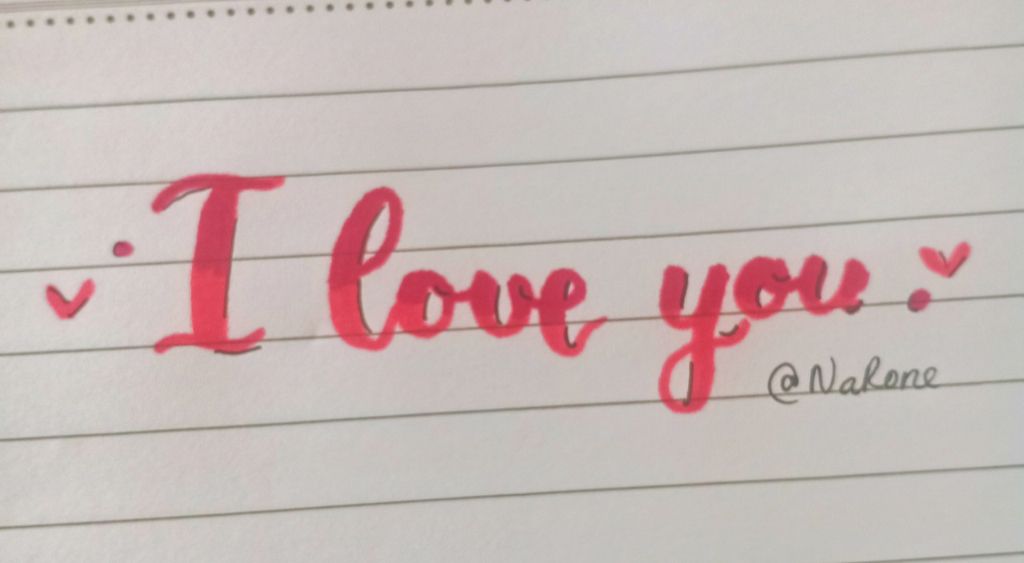 I love you
@NaRone